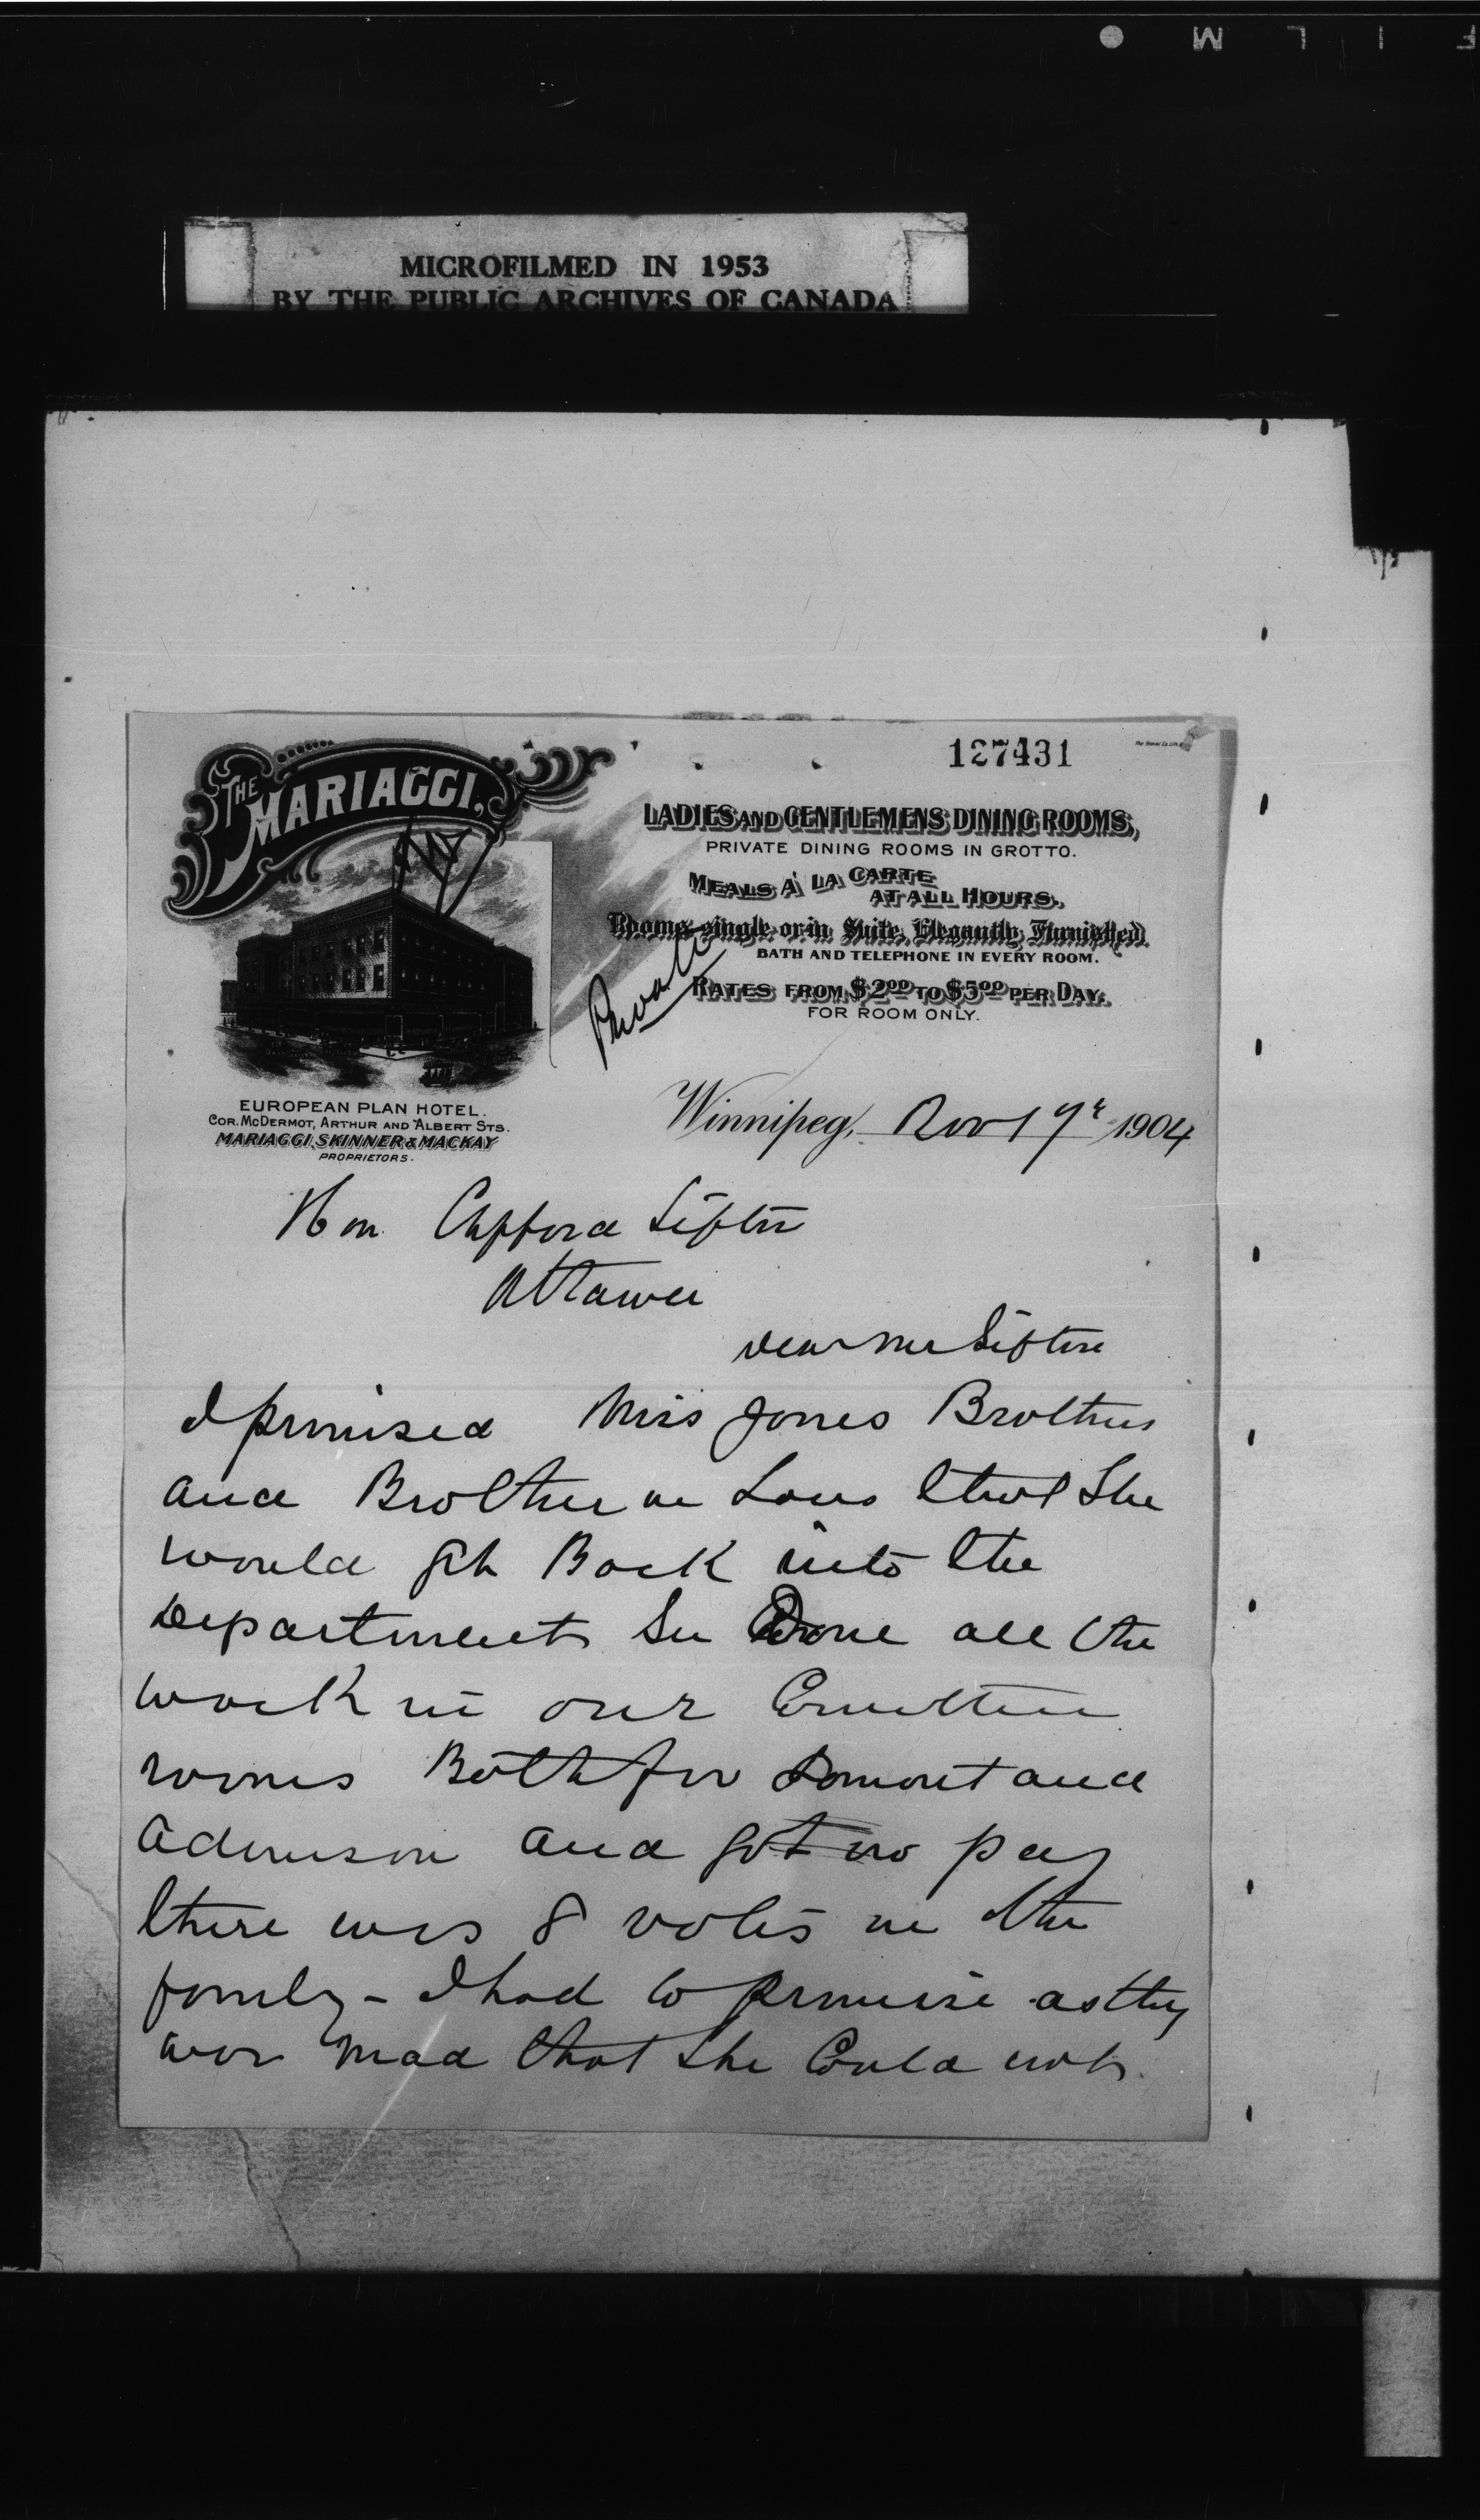 F I L M
MICROFILMED IN 1953
BY THE PUBLIC ARCHIVES OF CANADA
127431
THE MARIAGGI,
LADIES AND GENTLEMENS DINING ROOMS,
PRIVATE DINING ROOMS IN GROTTO.
MEALS À LA CARTE
AT ALL HOURS.
Rooms single or in Suite, Elegantly Furnished.
BATH AND TELEPHONE IN EVERY ROOM.
RATES FROM $2.00 TO $5.00 PER DAY.
FOR ROOM ONLY.
Private
EUROPEAN PLAN HOTEL.
COR. MCDERMOT, ARTHUR AND ALBERT STS.
MARIAGGI, SKINNER & MACKAY
PROPRIETORS.
Winnipeg, Nov 17th 1904
Hon Clifford Sifton
Ottawa
Dear Mr Sifton
I promised Miss Jones Brothers
and Brother in Laws that She
would get Back into the
Department She Done all the
work in our Committee
rooms Both for Bomont and
Adamson and got no pay
there was 8 votes in the
family - I had to promise as they
wer mad that She Could not